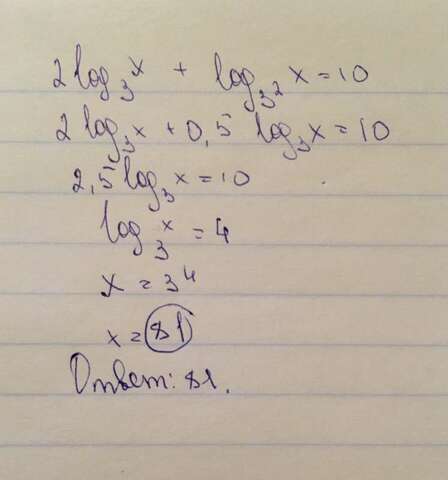 2 log₃ x + log₃² x = 10
2 log₃ x + 0,5 log₃ x = 10
2,5 log₃ x = 10
log₃ x = 4
x = 3⁴
x = 81
Ответ: 81.